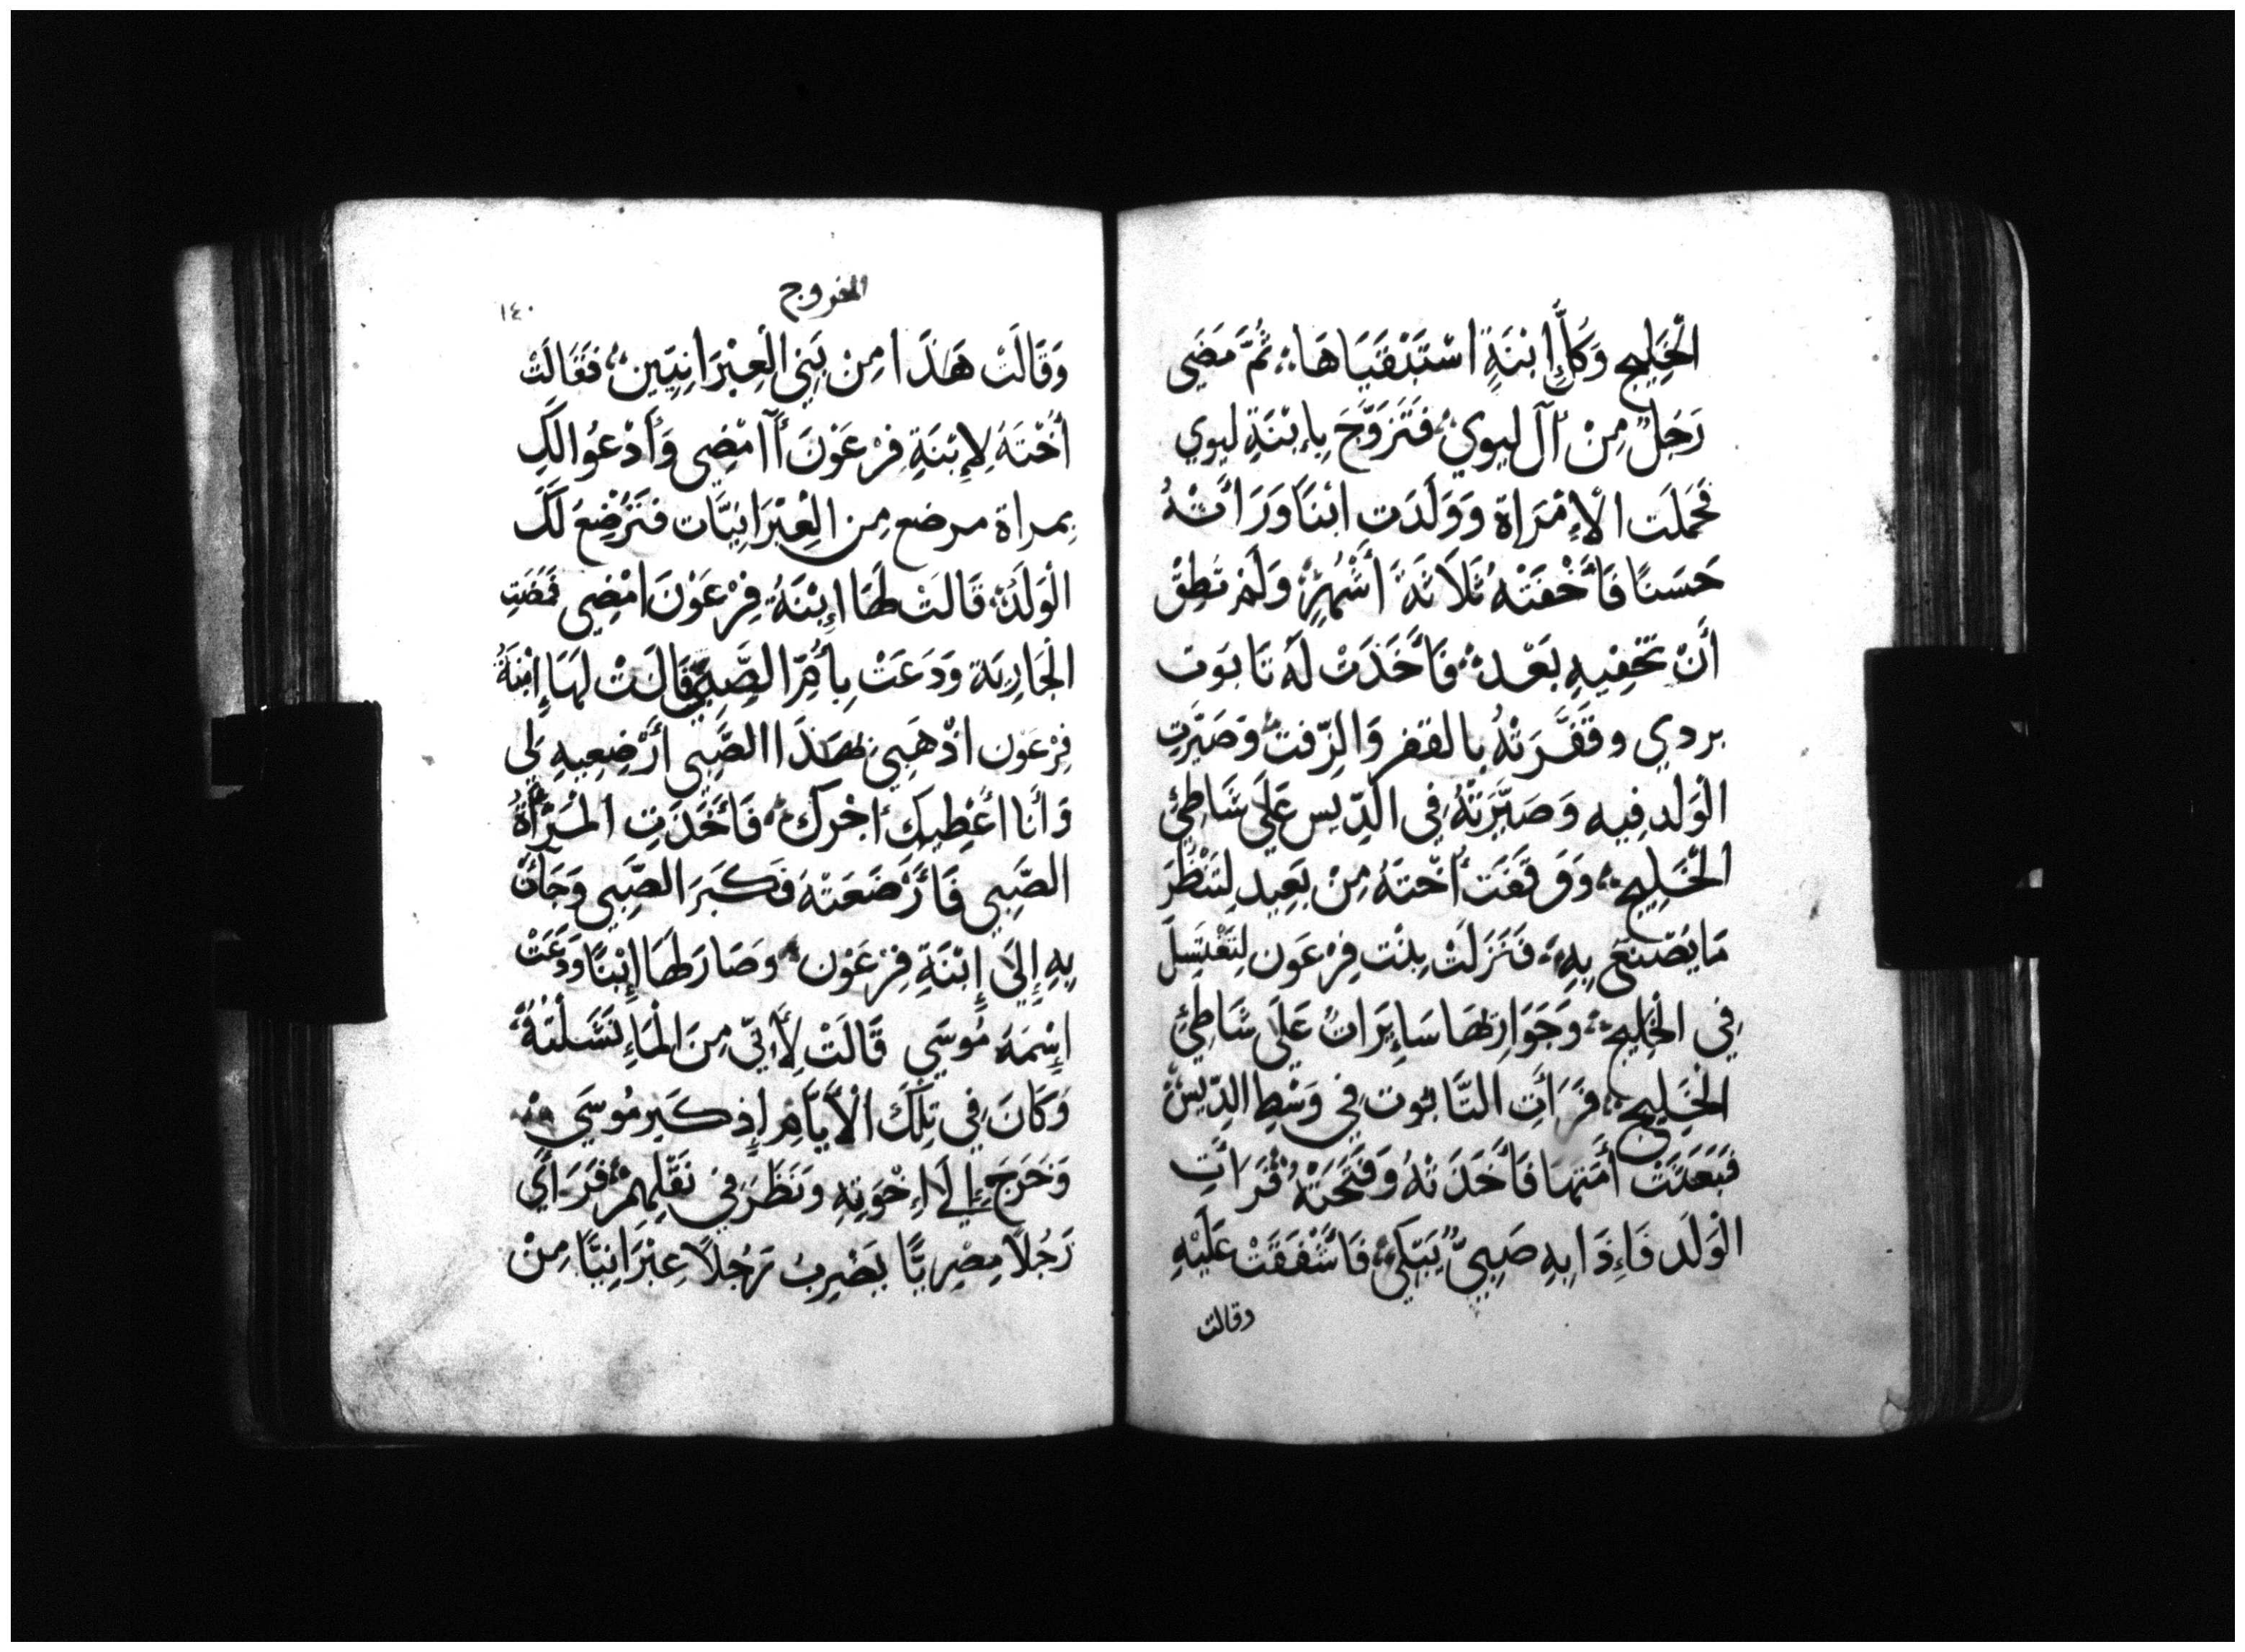 الْخَلِيج وَكُلَّ إبْنَةٍ اسْتَبْقَيَاهَا ثُمَّ مَضَى
رَجُلٌ مِنْ آل ليوي فَتَزَوَّجَ بِإبْنَةِ ليوي
فَحَمَلَت الْإمْرَاة وَوَلَدَتِ ابْنَا وَرَأَتْهُ
حَسَنًا فَأَخْفَتْهُ ثَلَاثَةَ أَشْهُرٍ وَلَمْ تَطِقْ
أَنْ تَخْفِيهِ بَعْد فَأَخَذَتْ لَهُ تَابوَت
بردي وقَفَّرَتْهُ بالقفر وَالزّفت وَصَيَّرَتِ
الْوَلَد فِيه وَصَيَّرَتْهُ فِي الدِّيس عَلَى شَاطِئِ
الْخَلِيج وَوَقَفَت أُخْتهُ مِنْ بَعِيد لِتَنْظُرَ
مَا يُصْنَع بِهِ فَنَزَلَتْ بِنْت فِرْعَون لِتَغْتَسِلَ
فِي الْخَلِيج وَجَوَارِيهَا سَايِرَاتٌ عَلَى شَاطِئِ
الْخَلِيج فَرَأَتِ التَّابُوت فِي وَسْطِ الدِّيس
فَبَعَثَتْ أَمَتهَا فَأَخَذَتْهُ وَفَتَحَتْهُ فَرَأَتِ
الْوَلَد فَإذَا بِهِ صَبِيٌّ يَبْكِي فَأَشْفَقَتْ عَلَيْهِ
وقالت
الخروج
١٤٠
وَقَالَتْ هَذَا مِنْ بَنِي الْعِبْرَانِيّينَ فَقَالَتْ
أُخْتَهُ لِإبْنَةِ فِرْعَوْنَ أَأمْضِي وَأَدْعُوا لَكِ
بِمراة مرضع مِن الْعِبْرَانِيَّات فَتَرْضِعَ لَكِ
الْوَلَد قَالَتْ لَهَا إبْنَةُ فِرْعَوْنَ امْضِي فَمَضَتِ
الْجَارِيَة وَدَعَتْ بِأُمِّ الصَّبِي قَالَتْ لَهَا إبْنَةُ
فِرْعَون اذْهَبِي بِهَذَا الصَّبِي أَرْضِعِيهِ لِي
وَأَنَا أُعْطِيكِ أجْرك فَأَخَذَتِ الْمَرْأَةُ
الصَّبِي فَأَرْضَعَتْهُ فَكَبَرَ الصَّبِي وَجَأَتْ
بِهِ إِلَى إِبْنَةِ فِرْعَوْن وصَارَ لَهَا إبْنًا وَدَعَتْ
إسْمَهُ مُوسَى قَالَتْ لِأَنِّي مِنَ الْمَاءِ نَشَلْتهُ
وَكَانَ فِي تِلْكَ الْأَيَّامِ إذ كَبر مُوسَى
وَخَرَجَ إِلَى إخْوَتِهِ وَنَظَرَ فِي ثقْلِهِمْ فَرَأَى
رَجُلًا مِصْرِيًّا يَضْرِبُ رَجُلًا عِبْرَانِيًّا مِنْ